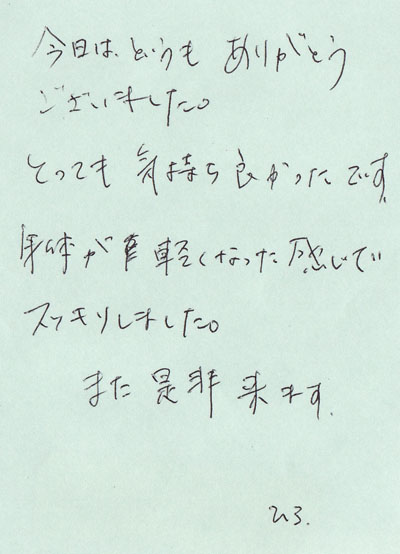 今日は、どうも ありがとう
ございました。
とっても 気持ち良かったです。
身体が 軽くなった感じで
スッキリしました。
また是非来ます。
ひろ.